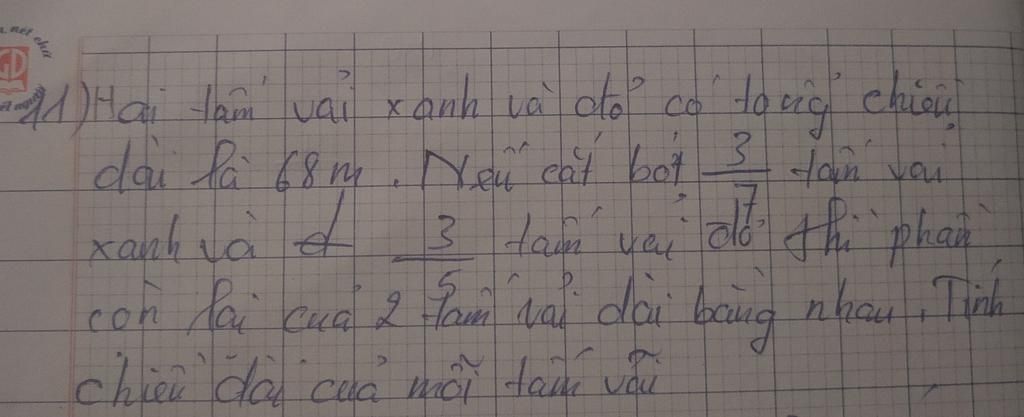 11) Hai tấm vải xanh và đỏ có tổng chiều
dài là 68m. Nếu cắt bớt 3/7 tấm vải
xanh và 3/5 tấm vải đỏ thì phần
còn lại của 2 tấm vải dài bằng nhau. Tính
chiều dài của mỗi tấm vải